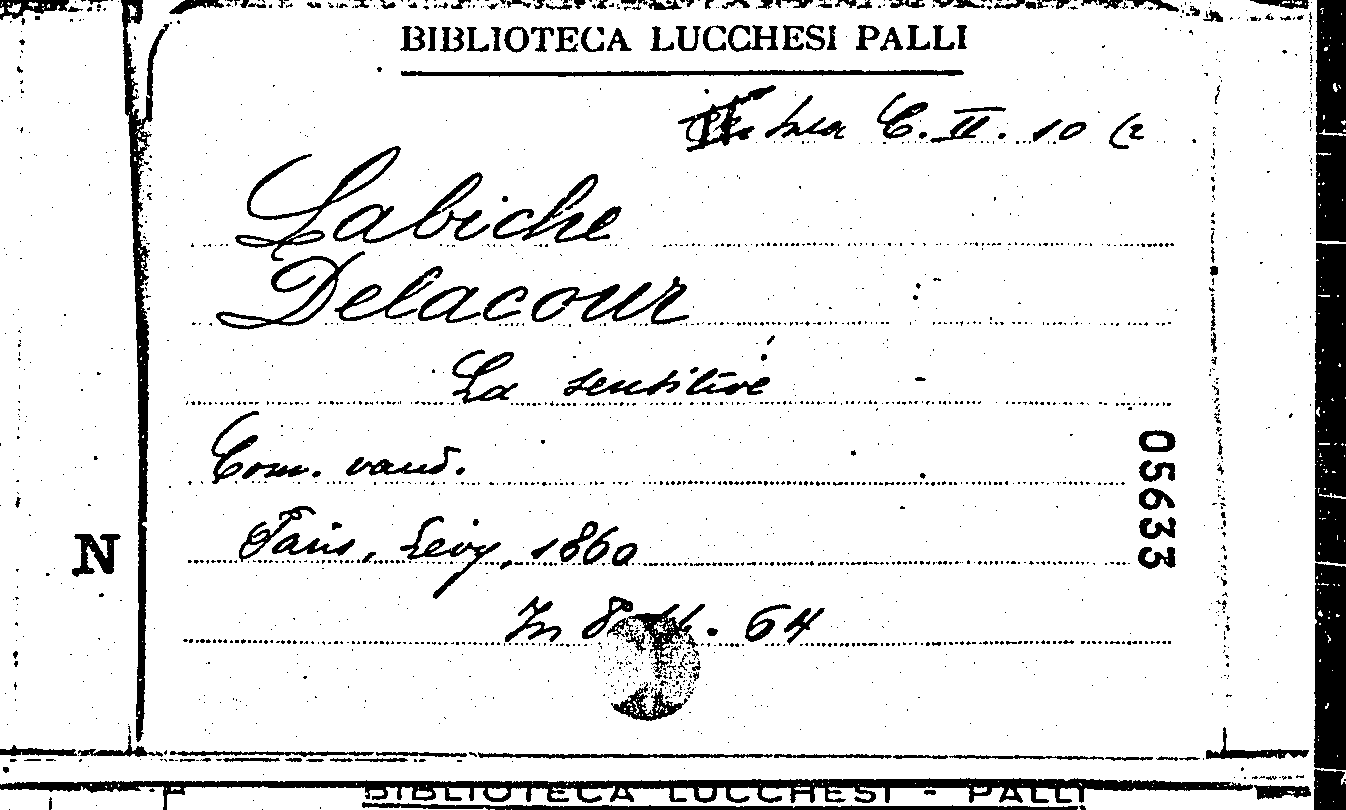 BIBLIOTECA LUCCHESI PALLI
C. II. 10 (2
Labiche
Delacour
La sensitive
Com. vaud.
05633
Paris, Lévy, 1860
N
In 8° 64
BIBLIOTECA LUCCHESI - PALLI